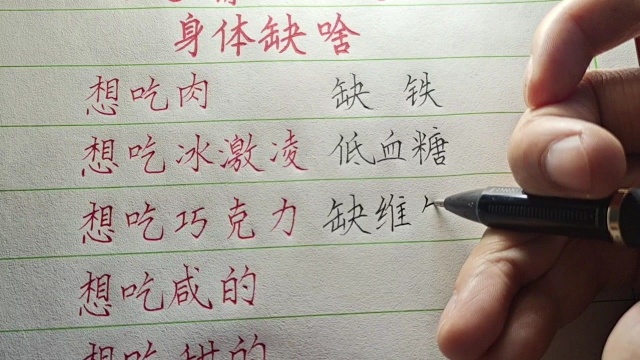 身体缺啥
想吃肉 缺 铁
想吃冰激凌 低血糖
想吃巧克力 缺维
想吃咸的
想吃甜的